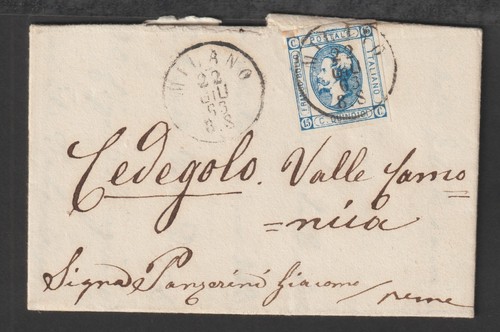 MILANO
22
GIU
63
8 S
FRANCO BOLLO
C POSTALE C
ITALIANO
15 C. QUINDICI C
22
GIU
8 S
Cedegolo. Valle Camo=
=nica
Signa Panzerini Giacomo